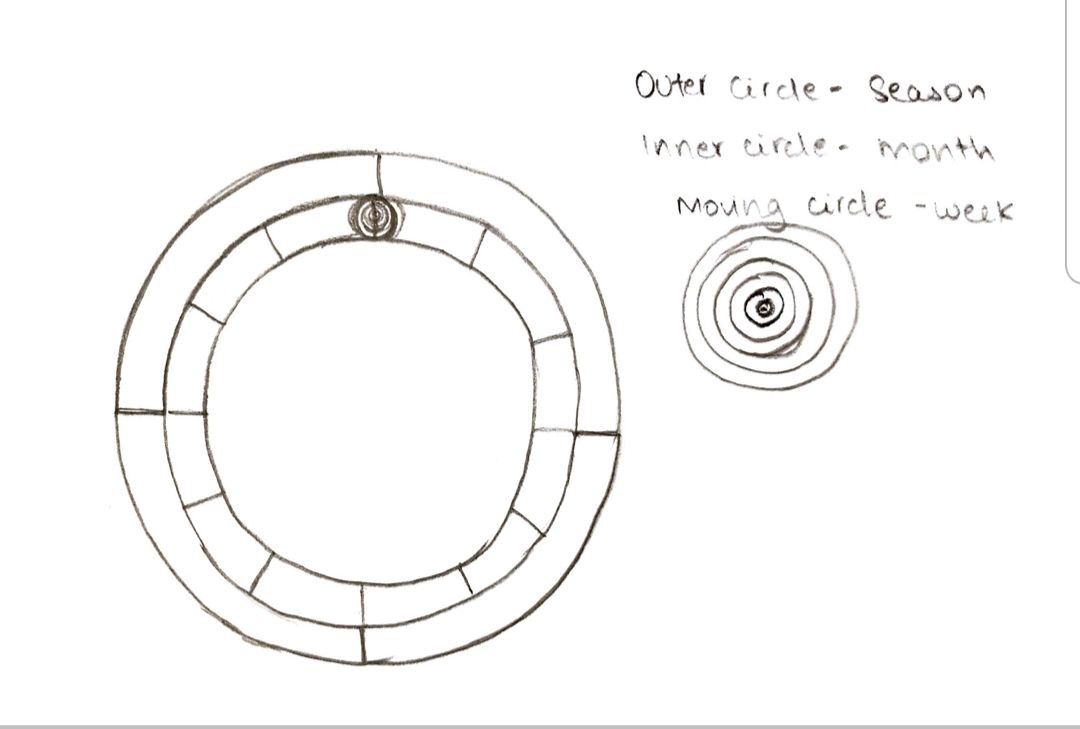 Outer circle - Season
Inner circle - month
Moving circle - week